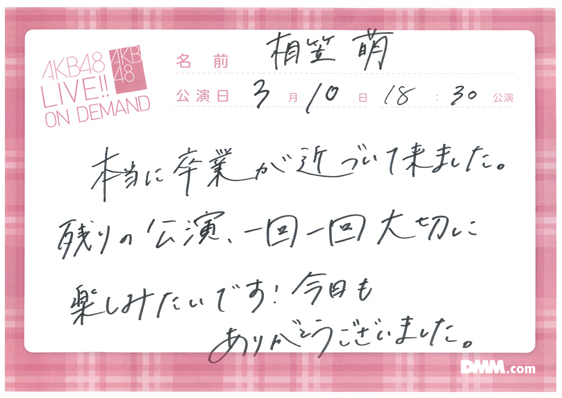 AKB48
LIVE!!
ON DEMAND
AKB
48
名前 相笠 萌
公演日 3月10日 18:30公演
本当に卒業が近づいて来ました。
残りの公演、一回一回大切に
楽しみたいです!今日も
ありがとうございました。
DMM.com